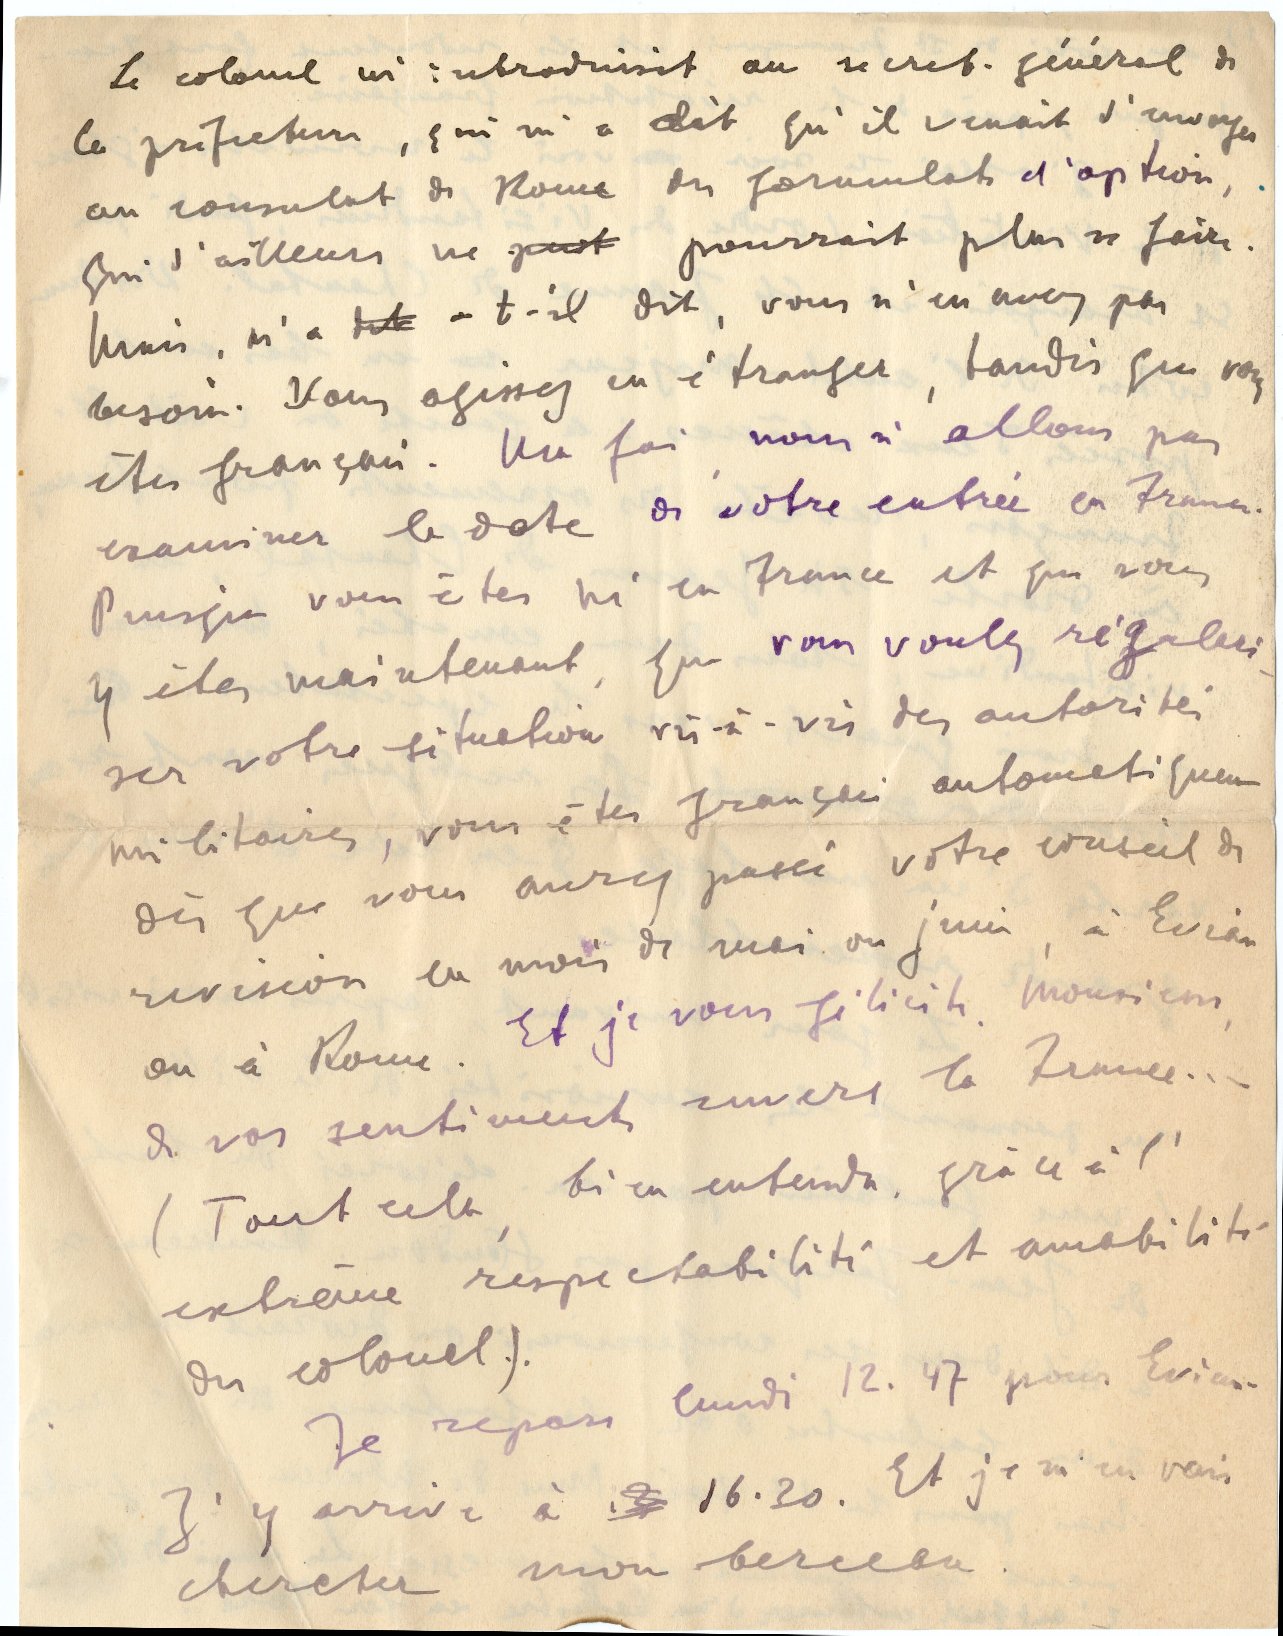 Le colonel m'introduisit au secret. général de
la préfecture, qui m'a dit qu'il venait d'envoyer
au consulat de Rome des formulats d'option,
qui d'ailleurs ne peut pourrait plus se faire.
Mais, m'a dit a-t-il dit, vous n'en avez pas
besoin. Vous agissez en étranger, tandis que vous
êtes français. Ma foi, nous n'allons pas
examiner la date de votre entrée en France.
Puisque vous êtes né en France et que vous
y êtes maintenant, que vous voulez régulari-
ser votre situation vis-à-vis des autorités
militaires, vous êtes français automatiquem
dès que vous aurez passé votre conseil de
revision en mois de mai ou juin, à Evian
ou à Rome. Et je vous félicite, Monsieur,
de vos sentiments envers la France....
(Tout cela, bien entendu, grâce à l'
extrême respectabilité et amabilité
du colonel).
Je repars lundi 12.47 pour Evian.
J'y arrive à 16.30. Et je m'en vais
chercher mon berceau.